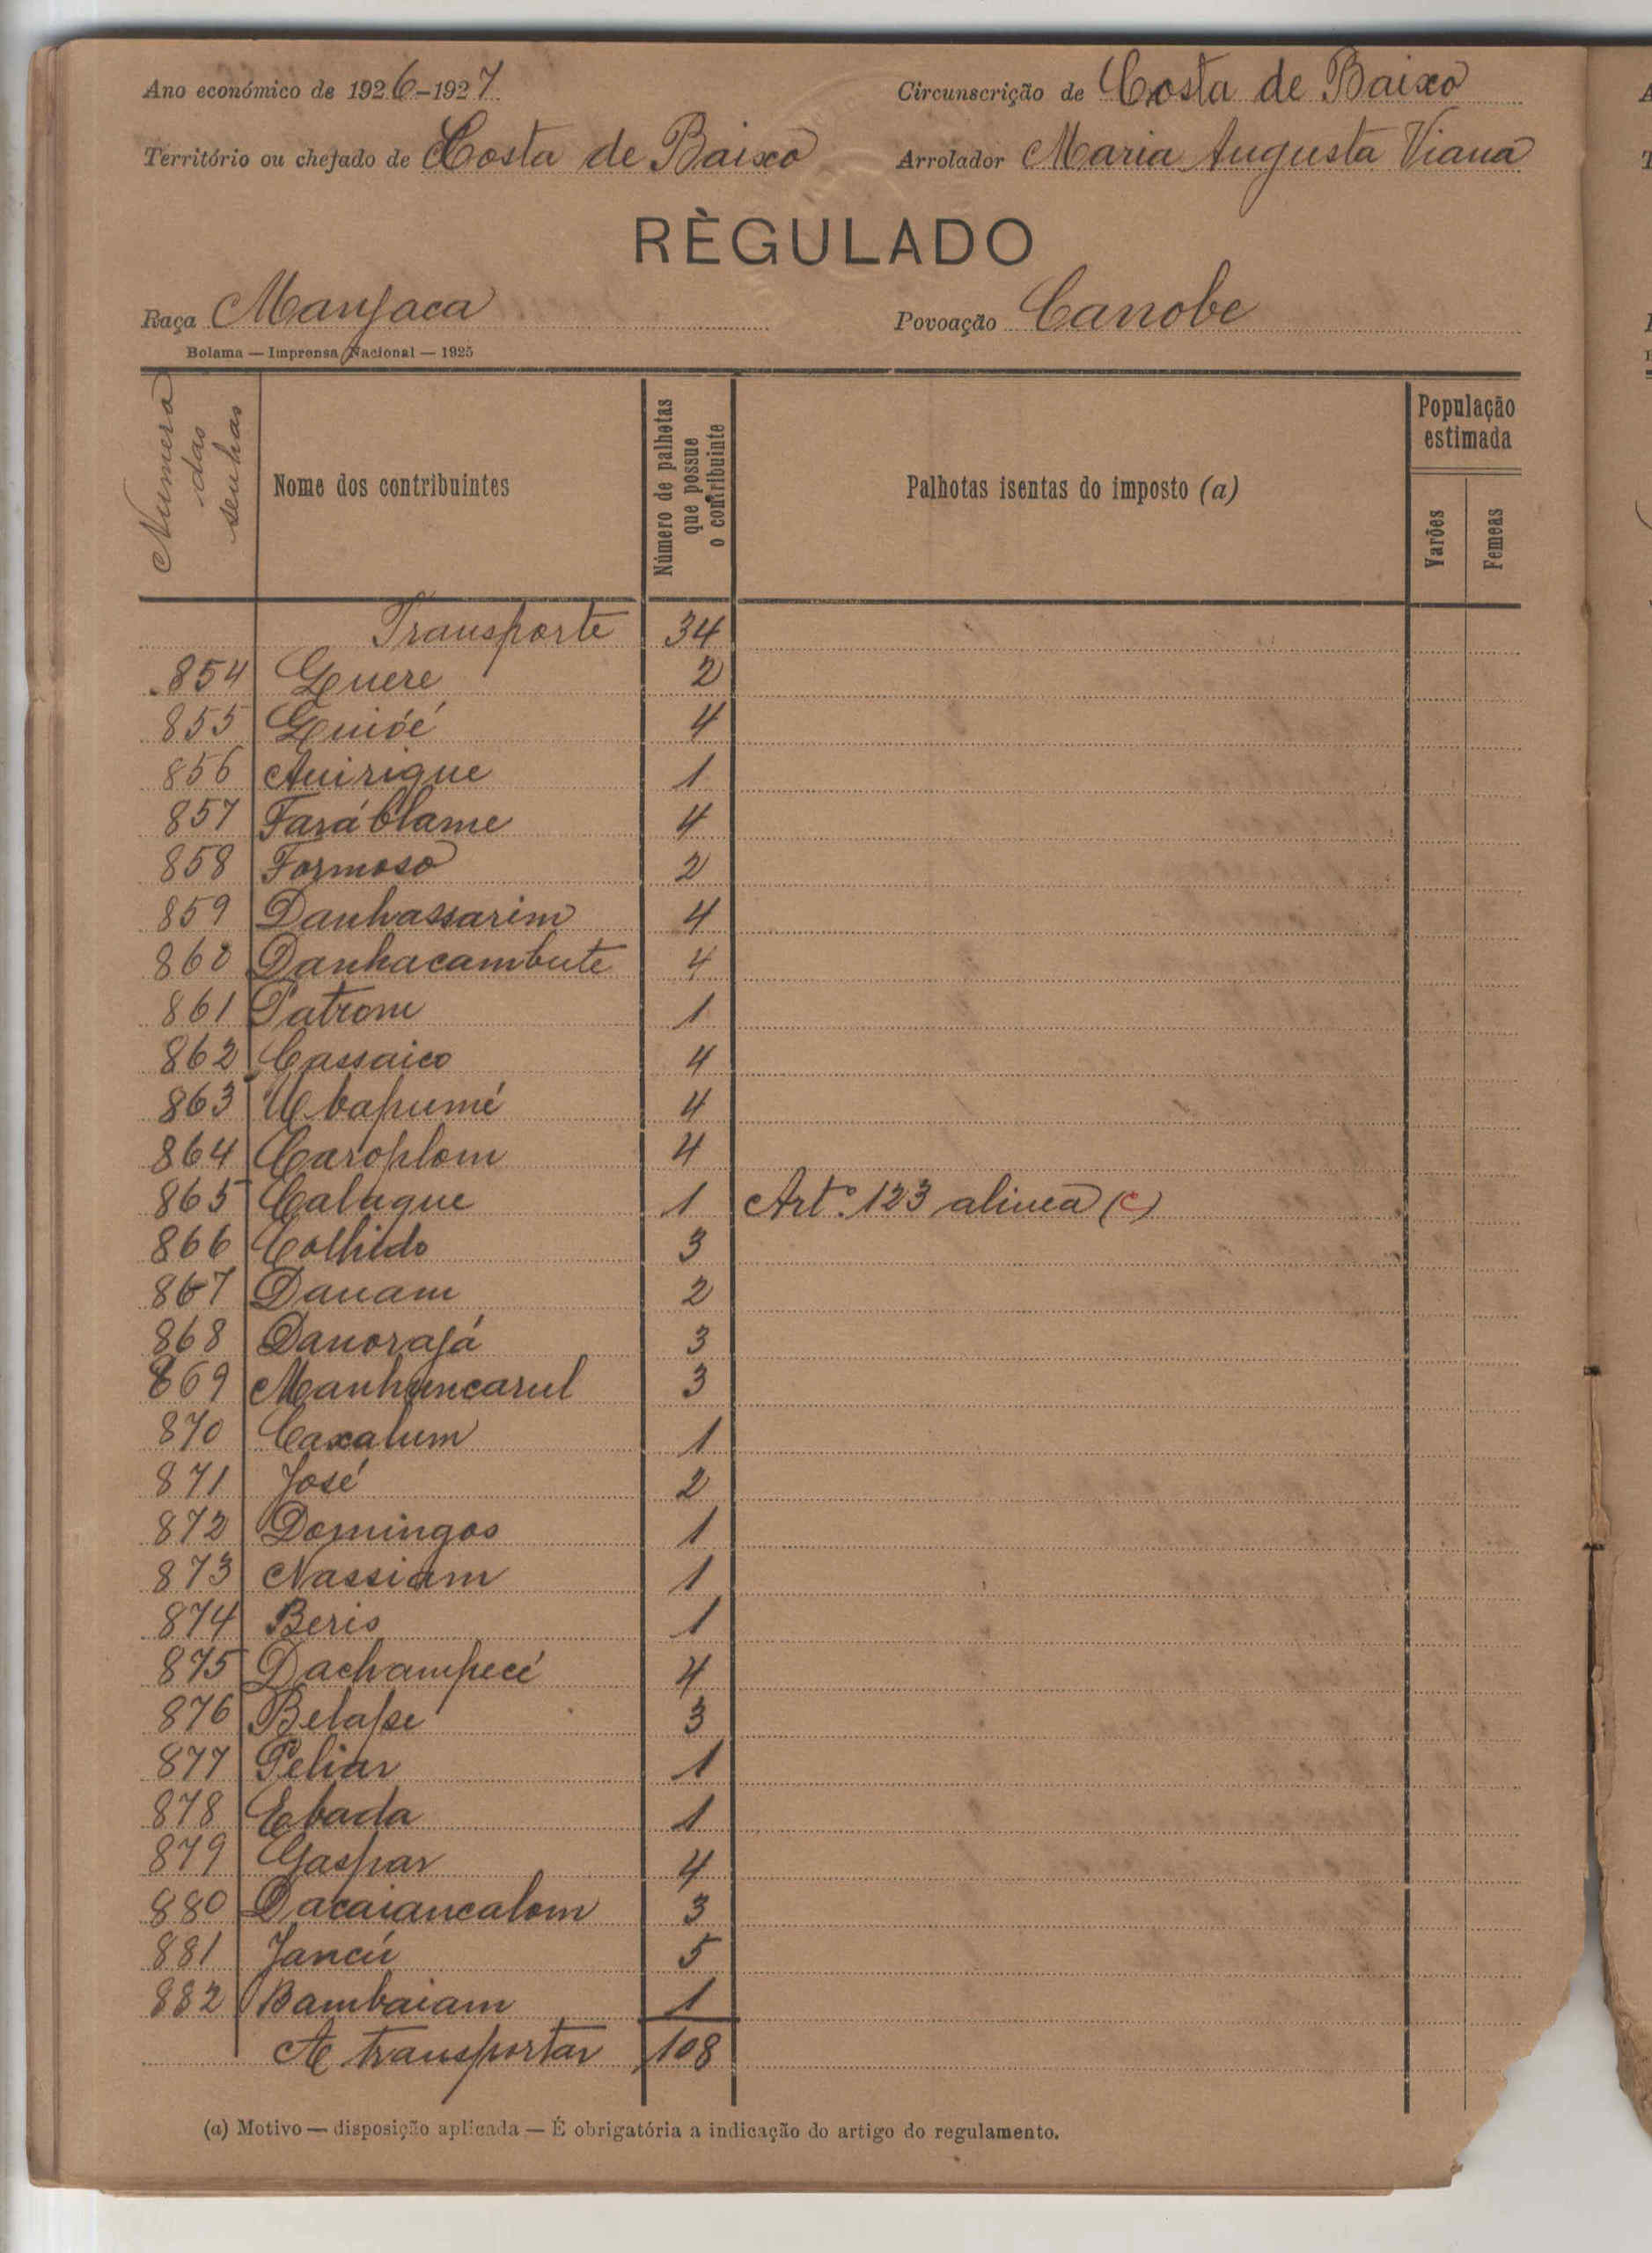 Ano económico de 1926-1927
Circunscrição de Costa de Baixo
Território ou chefado de Costa de Baixo
Arrolador Maria Augusta Viana
RÈGULADO
Raça Manjaca
Povoação Canobe
Bolama — Imprensa Nacional — 1925
Numero das senhas
Nome dos contribuintes
Número de palhotas que possue o contribuinte
Palhotas isentas do imposto (a)
População estimada
Varões
Femeas
Transporte 34
854 Guere 2
855 Guióé 4
856 Auirique 1
857 Faráblame 4
858 Formoso 2
859 Danhassarim 4
860 Danhacambute 4
861 Patrom 1
862 Cassaico 4
863 Ubapumé 4
864 Caroplom 4
865 Calaque 1 Artº. 123 alinea (c)
866 Colhido 3
867 Dauam 2
868 Danorajá 3
869 Manhuncarul 3
870 Caxalum 1
871 José 2
872 Domingos 1
873 Nassiam 1
874 Beris 1
875 Dachampecé 4
876 Belapse 3
877 Peliar 1
878 Ebada 1
879 Gaspar 4
880 Dacaiancalom 3
881 Jancú 5
882 Bambaiam 1
A transportar 108
(a) Motivo — disposição aplicada — É obrigatória a indicação do artigo do regulamento.